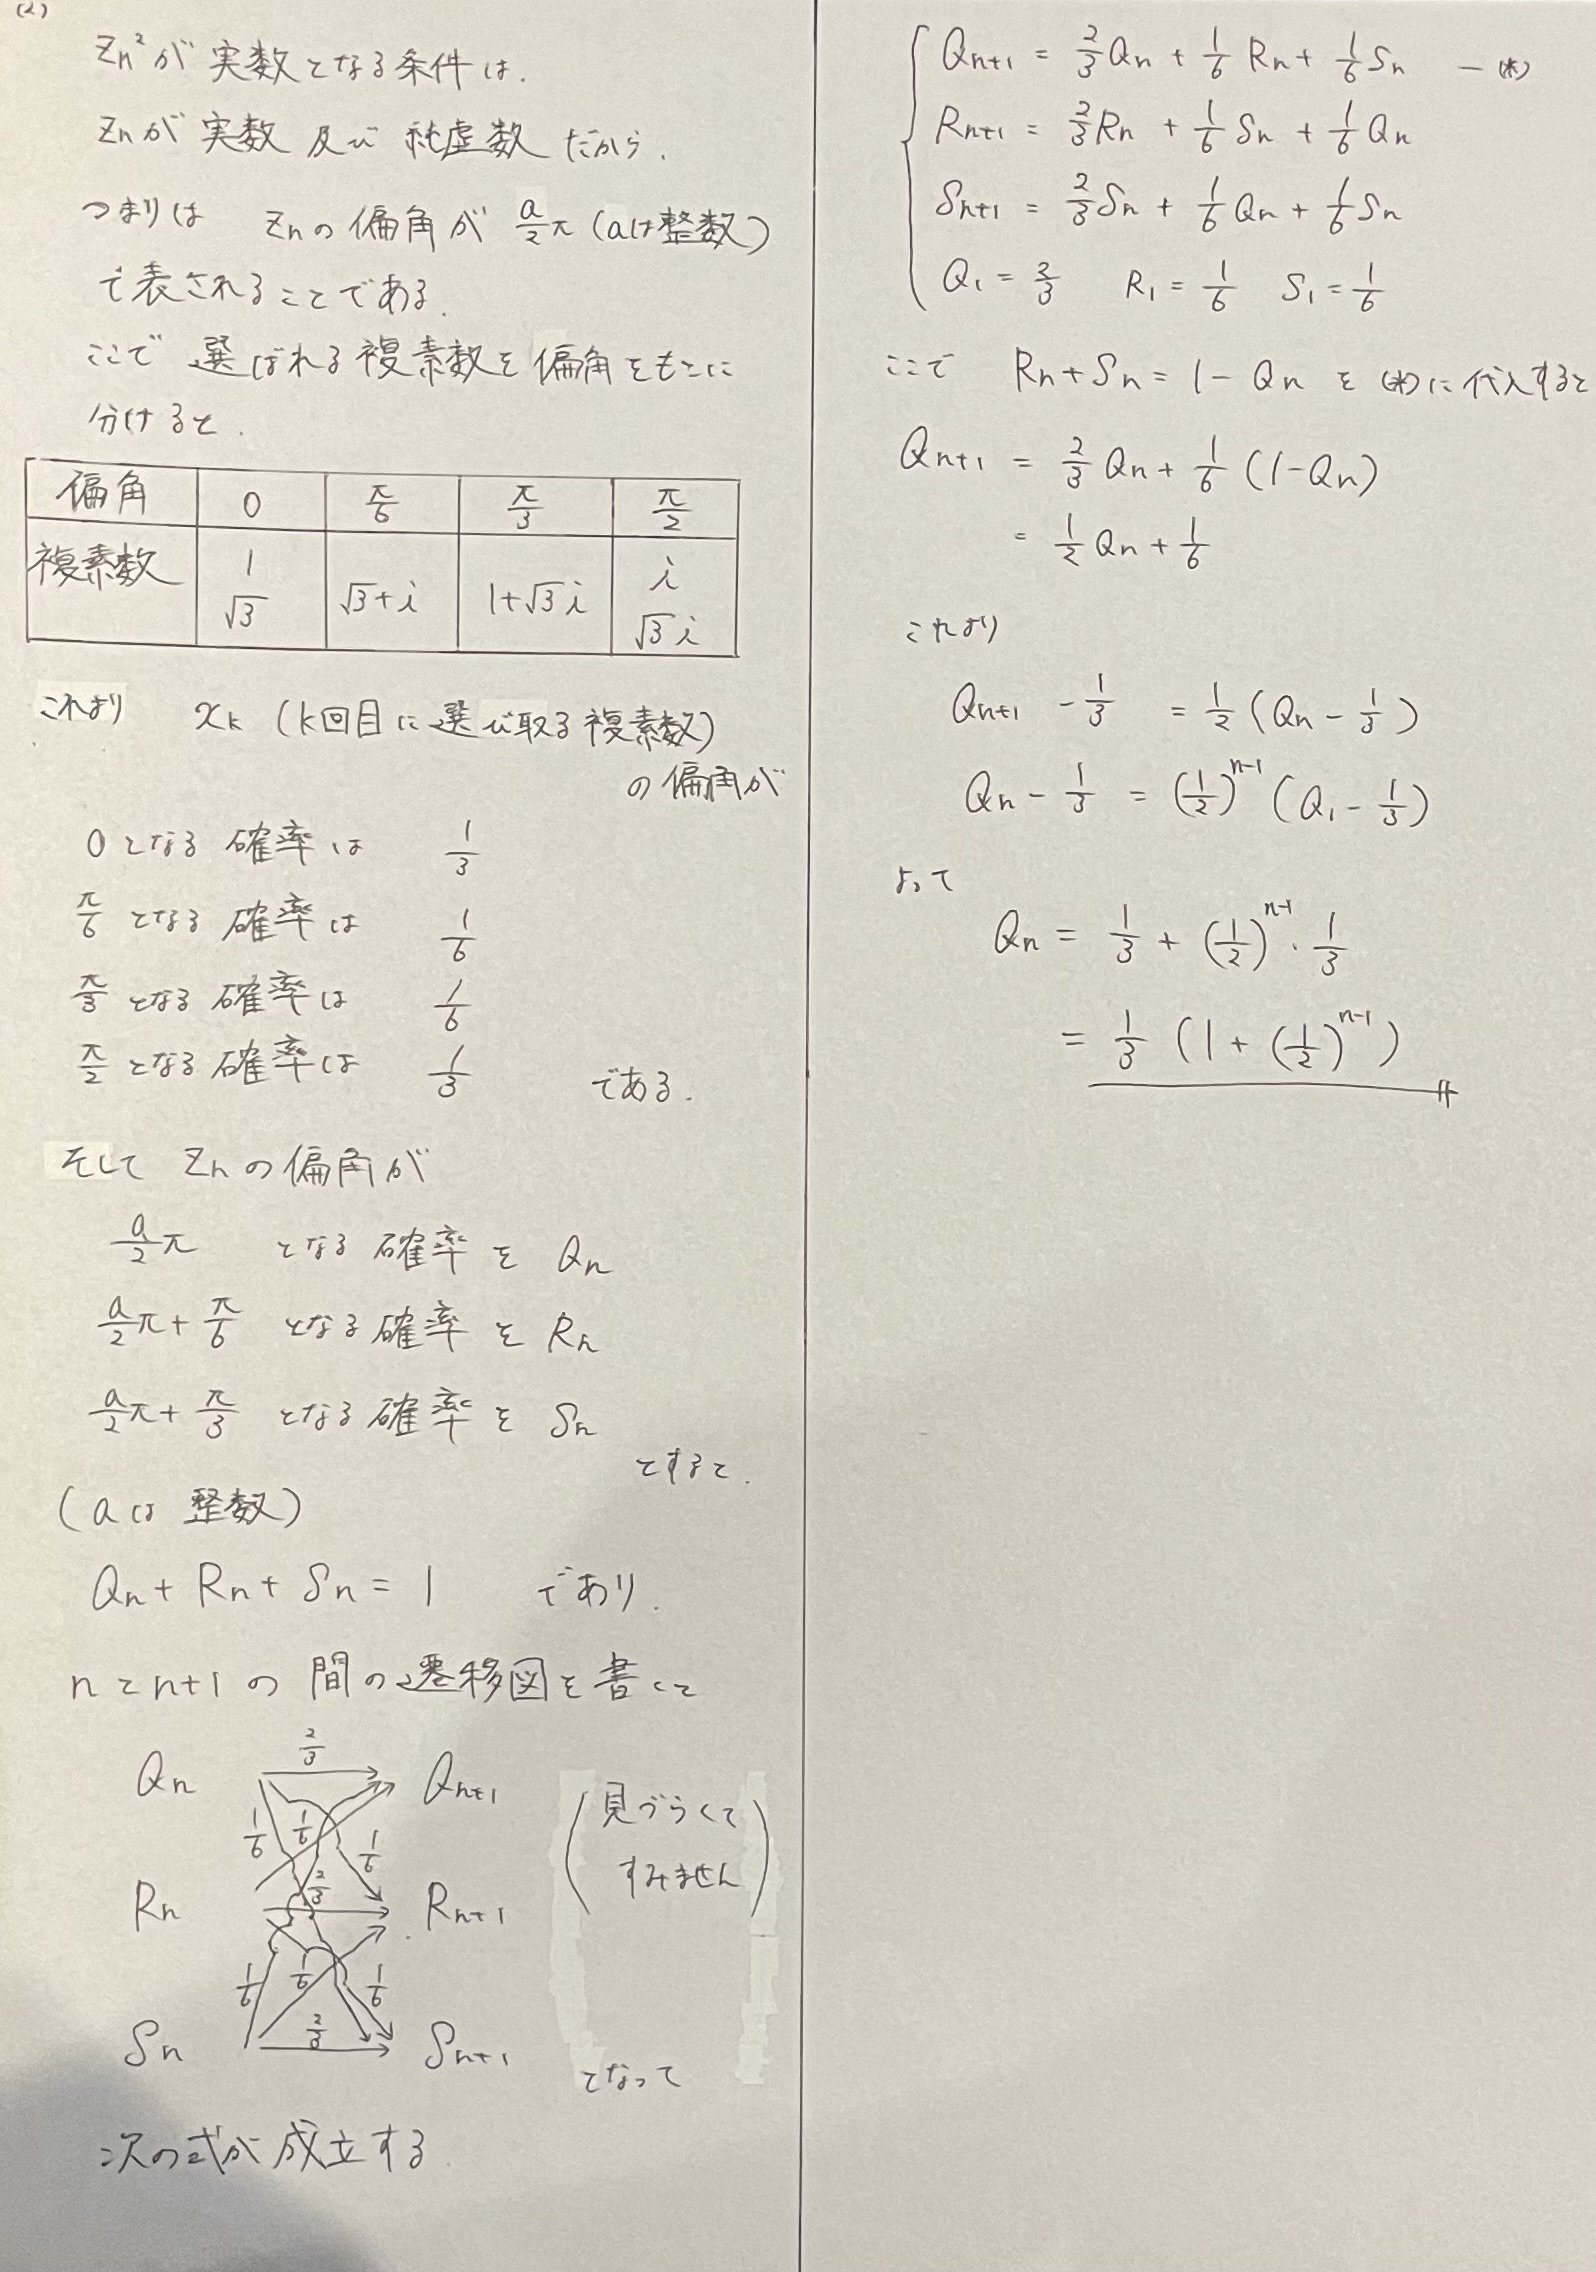 (2)
Zn²が実数となる条件は.
Znが実数及び純虚数だから.
つまりは Znの偏角が a/2 π (aは整数)
で表されることである.
ここで選ばれる複素数を偏角をもとに
分けると.
偏角 0 π/6 π/3 π/2
複素数 1 √3 √3+i 1+√3i i √3i
これより xk (k回目に選び取る複素数)
の偏角が
0となる確率は 1/3
π/6となる確率は 1/6
π/3となる確率は 1/6
π/2となる確率は 1/3 である.
そして Znの偏角が
a/2 π となる確率を Qn
a/2 π + π/6 となる確率を Rn
a/2 π + π/3 となる確率を Sn
とすると.
(aは整数)
Qn + Rn + Sn = 1 であり.
nとn+1の間の遷移図を書くと
2/3
Qn Qn+1
1/6 1/6 1/6
2/3
Rn Rn+1
1/6 1/6 1/6
2/3
Sn Sn+1
(見づらくて
すみません)
となって
次の式が成立する.
Qn+1 = 2/3 Qn + 1/6 Rn + 1/6 Sn ―(*)
Rn+1 = 2/3 Rn + 1/6 Sn + 1/6 Qn
Sn+1 = 2/3 Sn + 1/6 Qn + 1/6 Sn
Q1 = 2/3 R1 = 1/6 S1 = 1/6
ここで Rn + Sn = 1 - Qn を(*)に代入すると
Qn+1 = 2/3 Qn + 1/6 (1-Qn)
= 1/2 Qn + 1/6
これより
Qn+1 - 1/3 = 1/2 (Qn - 1/3)
Qn - 1/3 = (1/2)^(n-1) (Q1 - 1/3)
よって
Qn = 1/3 + (1/2)^(n-1) · 1/3
= 1/3 (1 + (1/2)^(n-1))